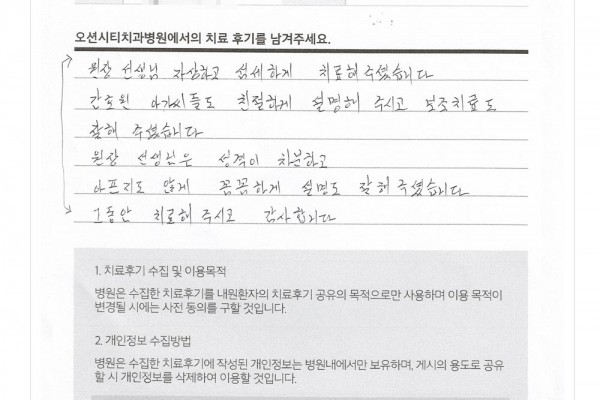 오션시티치과병원에서의 치료 후기를 남겨주세요.
원장 선생님 자상하고 섬세하게 치료해 주셨습니다
간호원 아가씨들도 친절하게 설명해 주시고 보조치료도
잘해 주셨습니다
원장 선생님은 성격이 차분하고
아프지도 않게 꼼꼼하게 설명도 잘해 주셨습니다
그동안 치료해 주시고 감사합니다
1. 치료후기 수집 및 이용목적
병원은 수집한 치료후기를 내원환자의 치료후기 공유의 목적으로만 사용하며 이용 목적이
변경될 시에는 사전 동의를 구할 것입니다.
2. 개인정보 수집방법
병원은 수집한 치료후기에 작성된 개인정보는 병원내에서만 보유하며, 게시의 용도로 공유
할 시 개인정보를 삭제하여 이용할 것입니다.